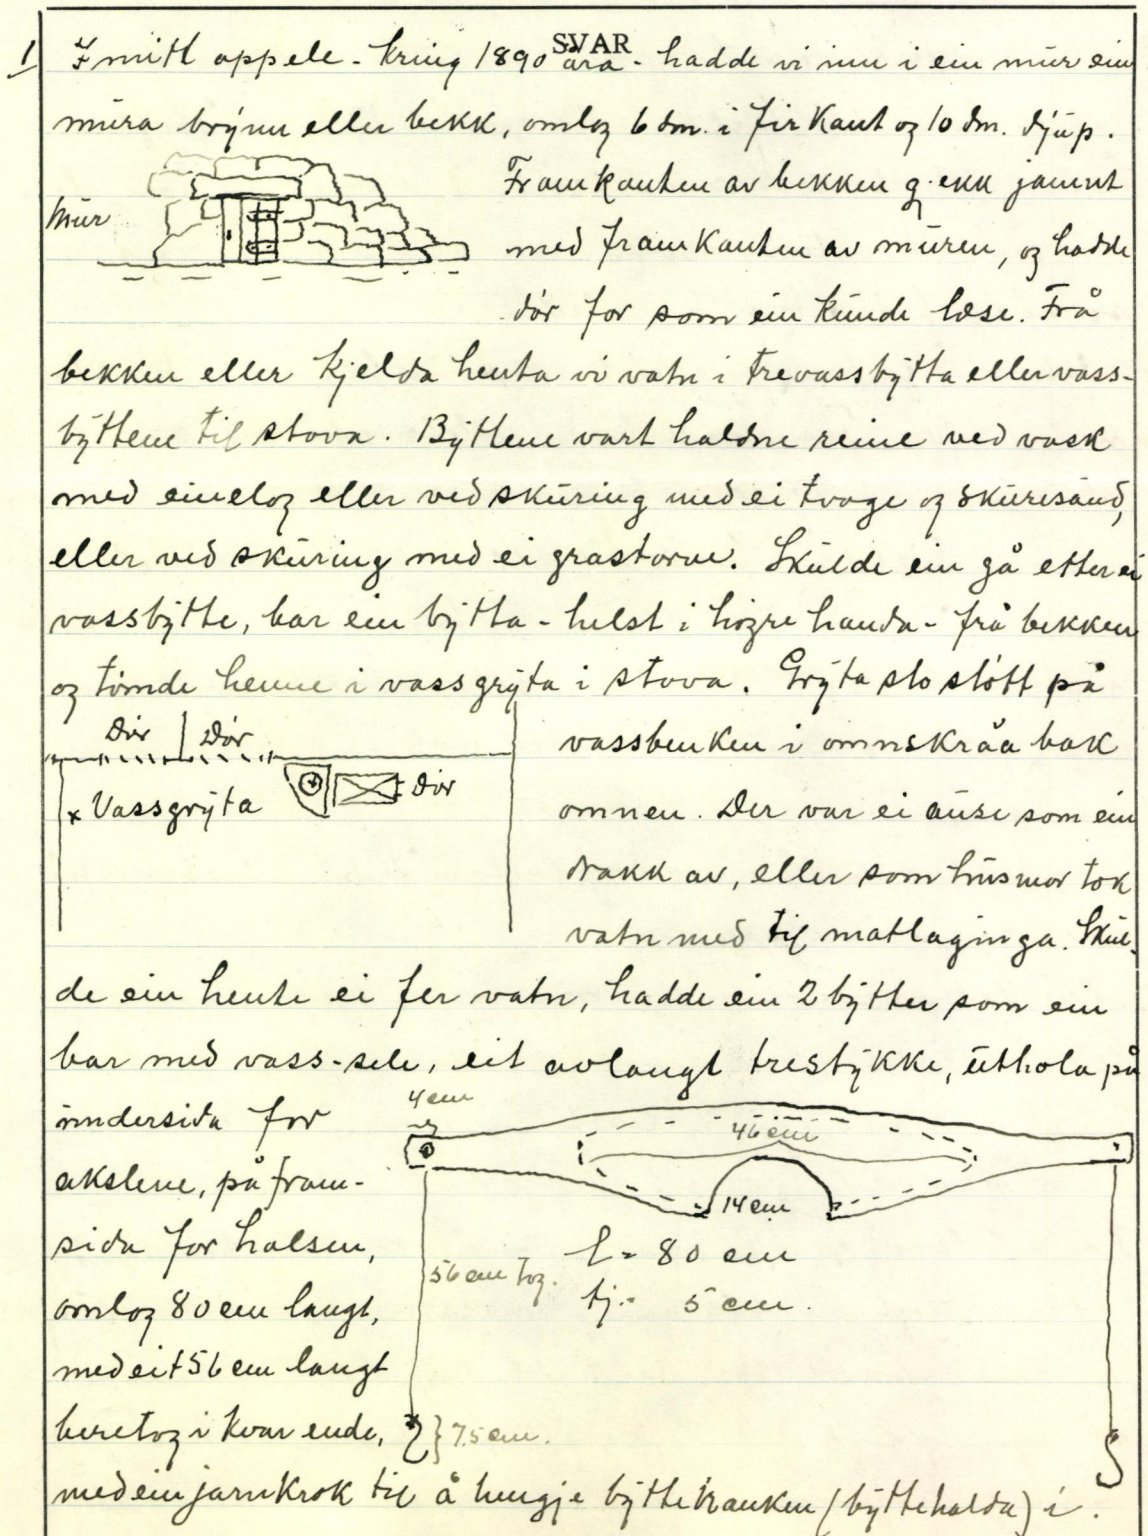 SVAR
1 I mitt oppele - kring 1890 åra - hadde vi inn i ein mur ein
mura brynn eller bekk, omlog 6 dm. i firkant og 10 dm. djup.
Framkanten av bekken gjekk jamnt
mur
med framkanten av muren, og hadde
dør for som ein kunde læse. Frå
bekken eller kjelda henta vi vatn i trevassbytta eller vass-
byttene til stova. Byttene vart haldne reine ved vask
med einelog eller ved skuring med ei tvoge og skuresand,
eller ved skuring med ei grastorve. Skulde ein gå etter ei
vassbytte, bar ein bytta - helst i høgre handa - frå bekken
og tømde henne i vassgryta i stova. Gryta sto støtt på
Dør Dør
vassbenken i omnskråa bak
Dør
x Vassgryta
omnen. Der var ei ause som ein
drakk av, eller som husmor tok
vatn med til matlaginga. Skul-
de ein hente ei fer vatn, hadde ein 2 bytter som ein
bar med vass-sele, eit avlangt trestykke, uthola på
4 cm
undersida for
46 cm
akslene, på fram-
14 cm
sida for halsen,
l = 80 cm
56 cm tog.
tj. = 5 cm.
omlog 80 cm langt,
med eit 56 cm langt
beretog i kvar ende,
7.5 cm.
med ein jarnkrok til å hengje byttehanken (byttehalda) i.